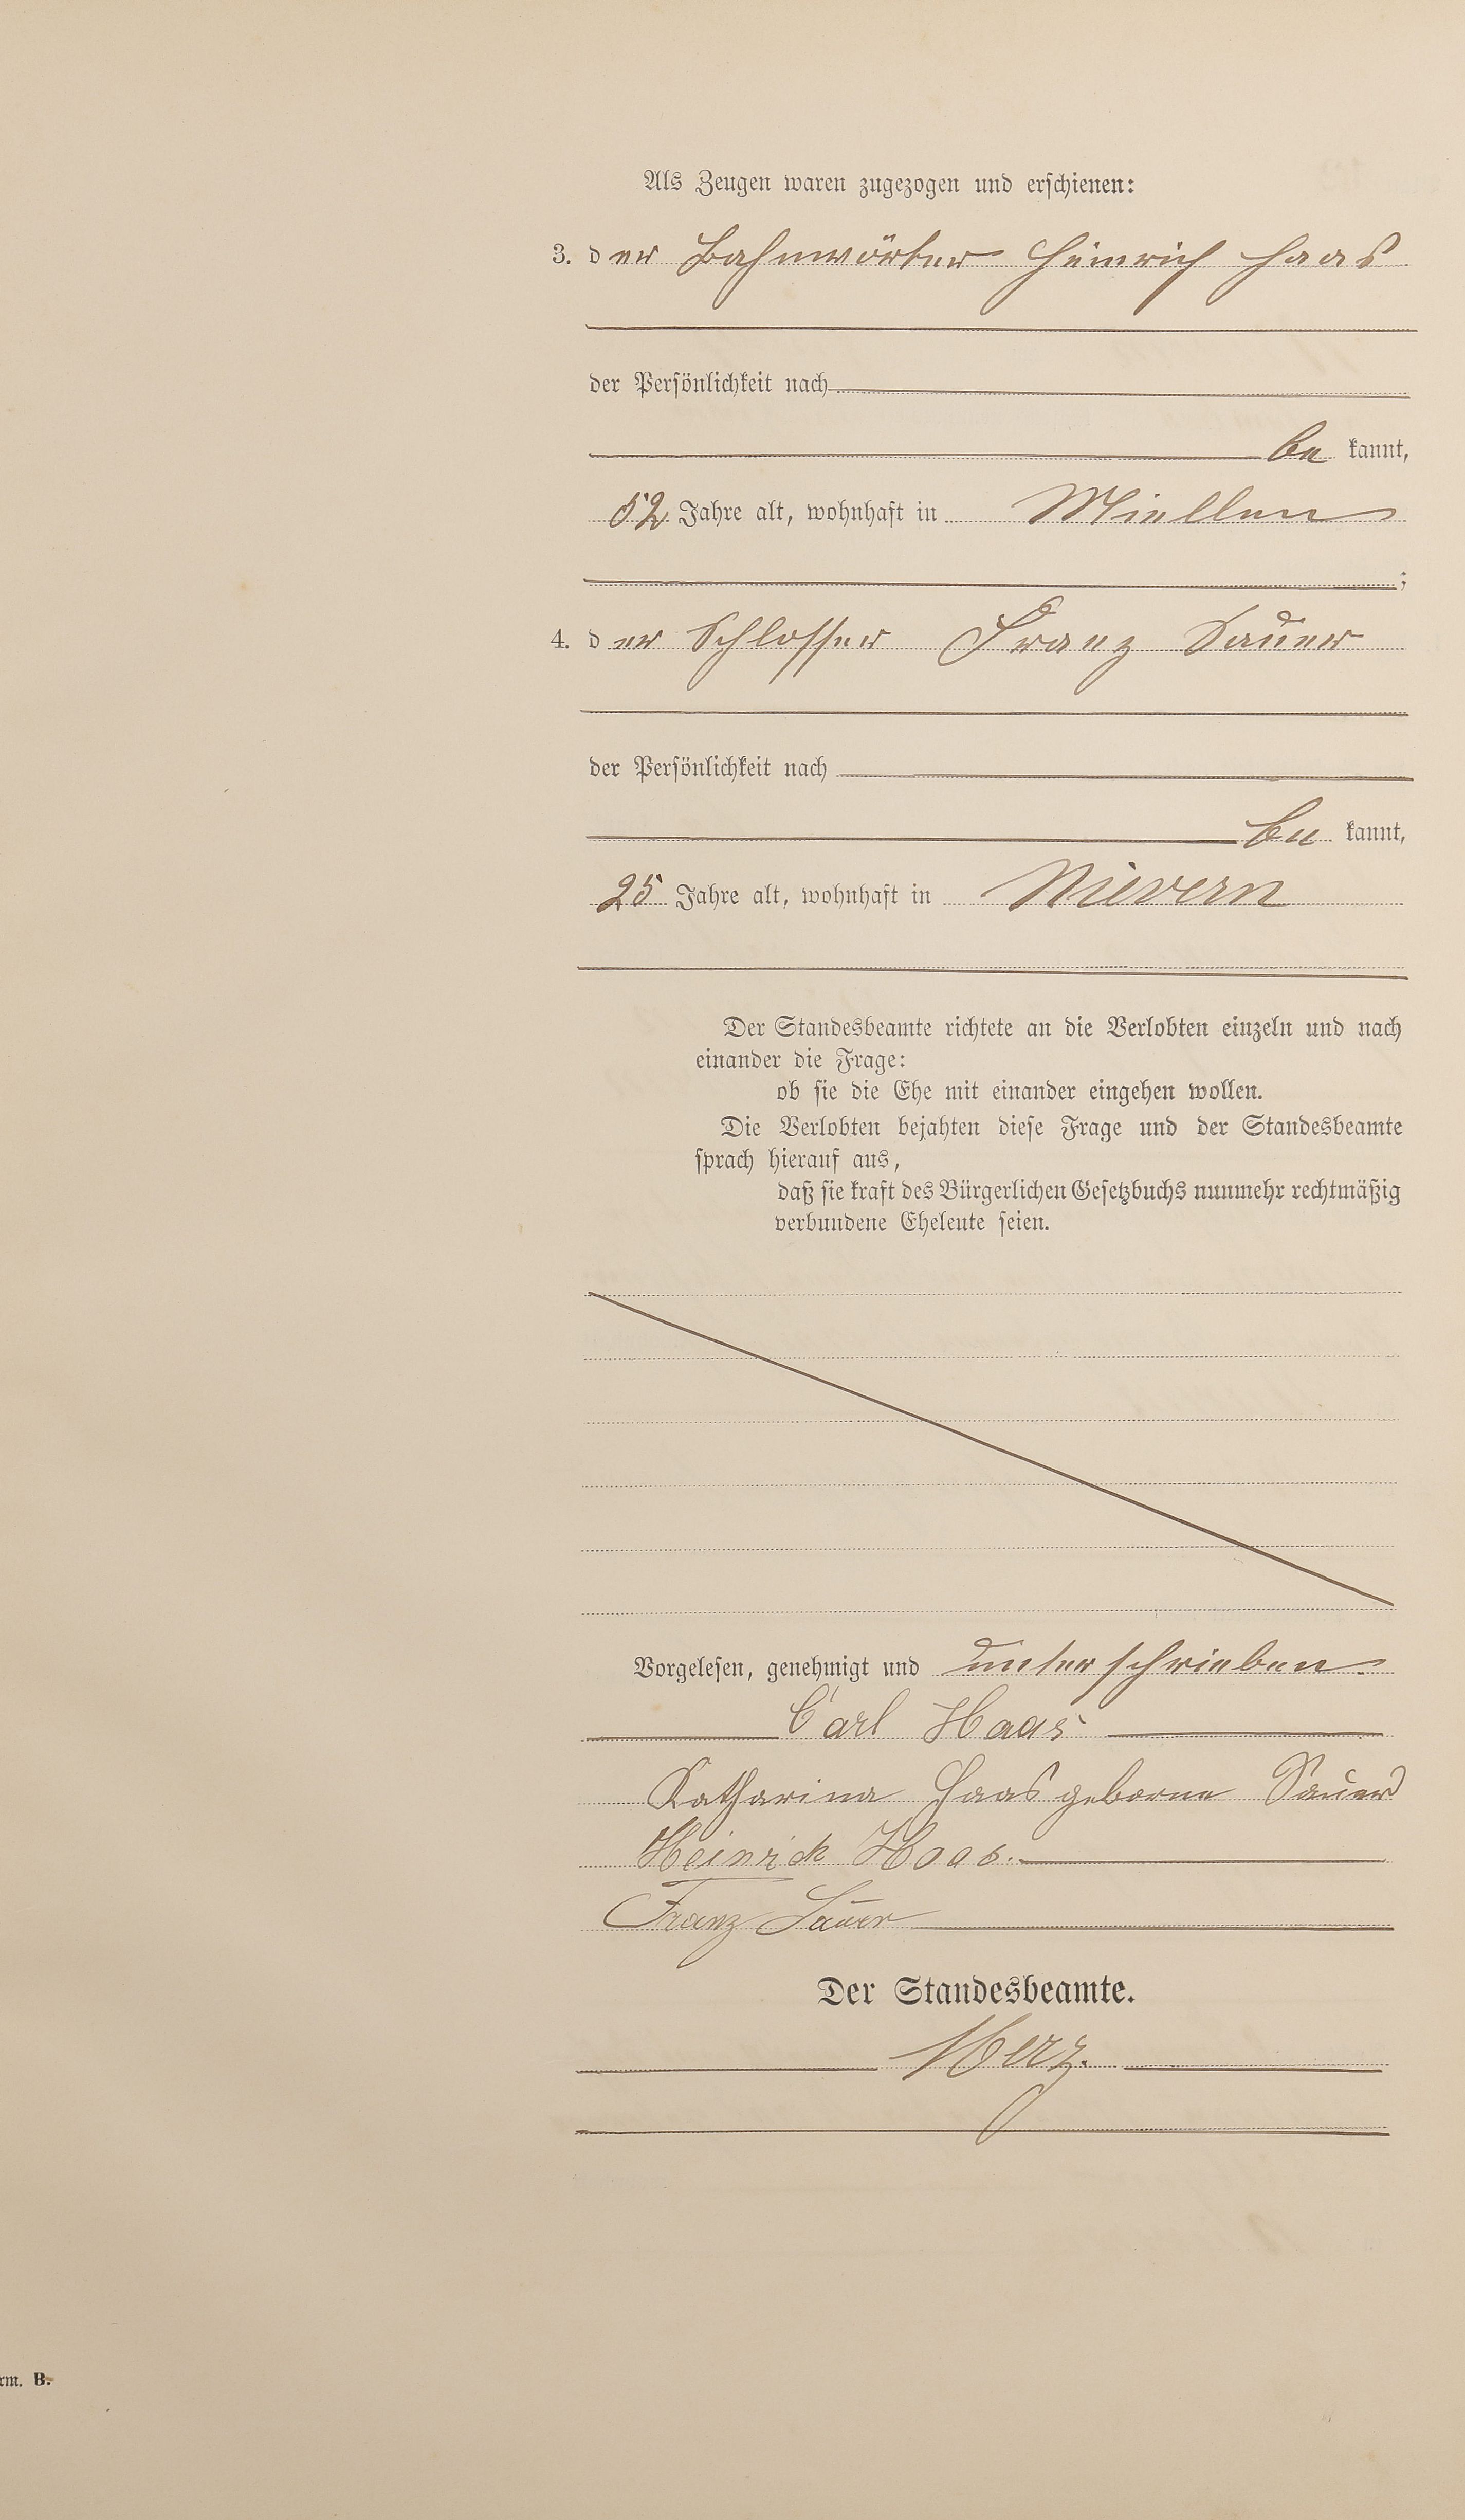 Als Zeugen waren zugezogen und erschienen:
3. der Bahnwärter Heinrich Haas
der Persönlichkeit nach
be kannt,
52 Jahre alt, wohnhaft in Miellen
;
4. der Schlosser Franz Sauer
der Persönlichkeit nach
be kannt,
25 Jahre alt, wohnhaft in Nievern
Der Standesbeamte richtete an die Verlobten einzeln und nach
einander die Frage:
ob sie die Ehe mit einander eingehen wollen.
Die Verlobten bejahten diese Frage und der Standesbeamte
sprach hierauf aus,
daß sie kraft des Bürgerlichen Gesetzbuchs nunmehr rechtmäßig
verbundene Eheleute seien.
Vorgelesen, genehmigt und unterschrieben
Carl Haas
Katharina Haas geborne Sauer
Heinrich Haas.
Franz Sauer
Der Standesbeamte.
Herz.
rm. B.